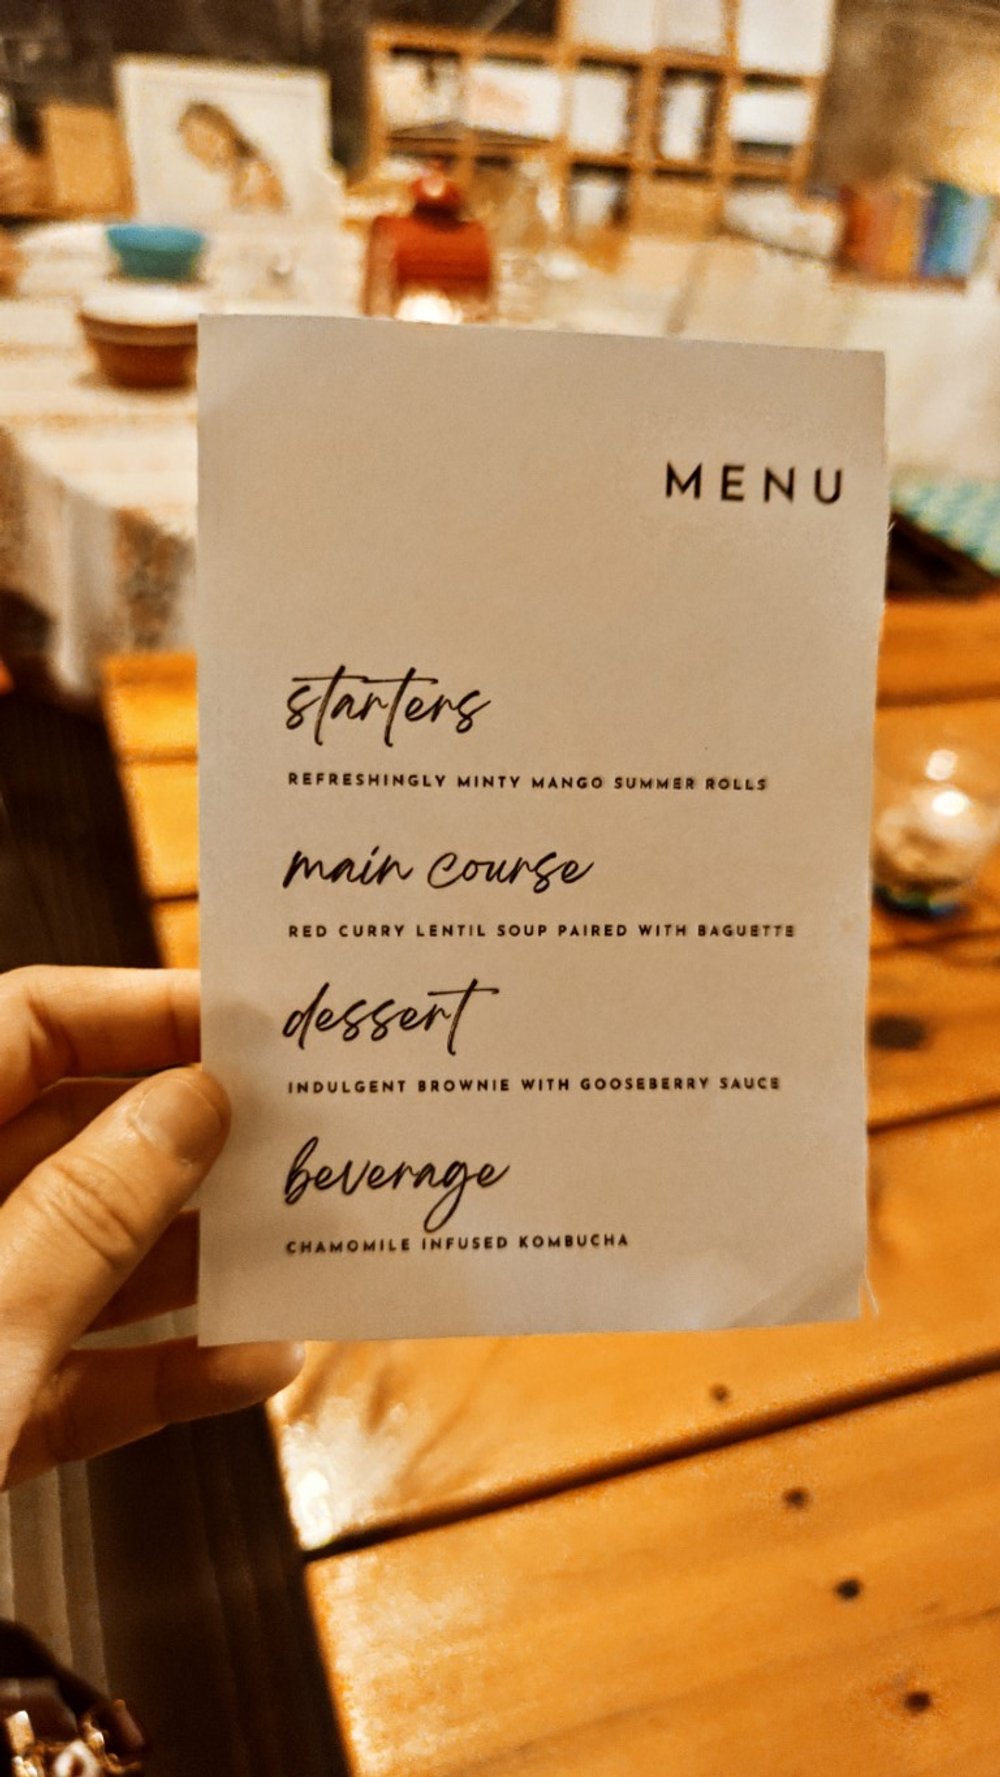 MENU
starters
REFRESHINGLY MINTY MANGO SUMMER ROLLS
main course
RED CURRY LENTIL SOUP PAIRED WITH BAGUETTE
dessert
INDULGENT BROWNIE WITH GOOSEBERRY SAUCE
beverage
CHAMOMILE INFUSED KOMBUCHA